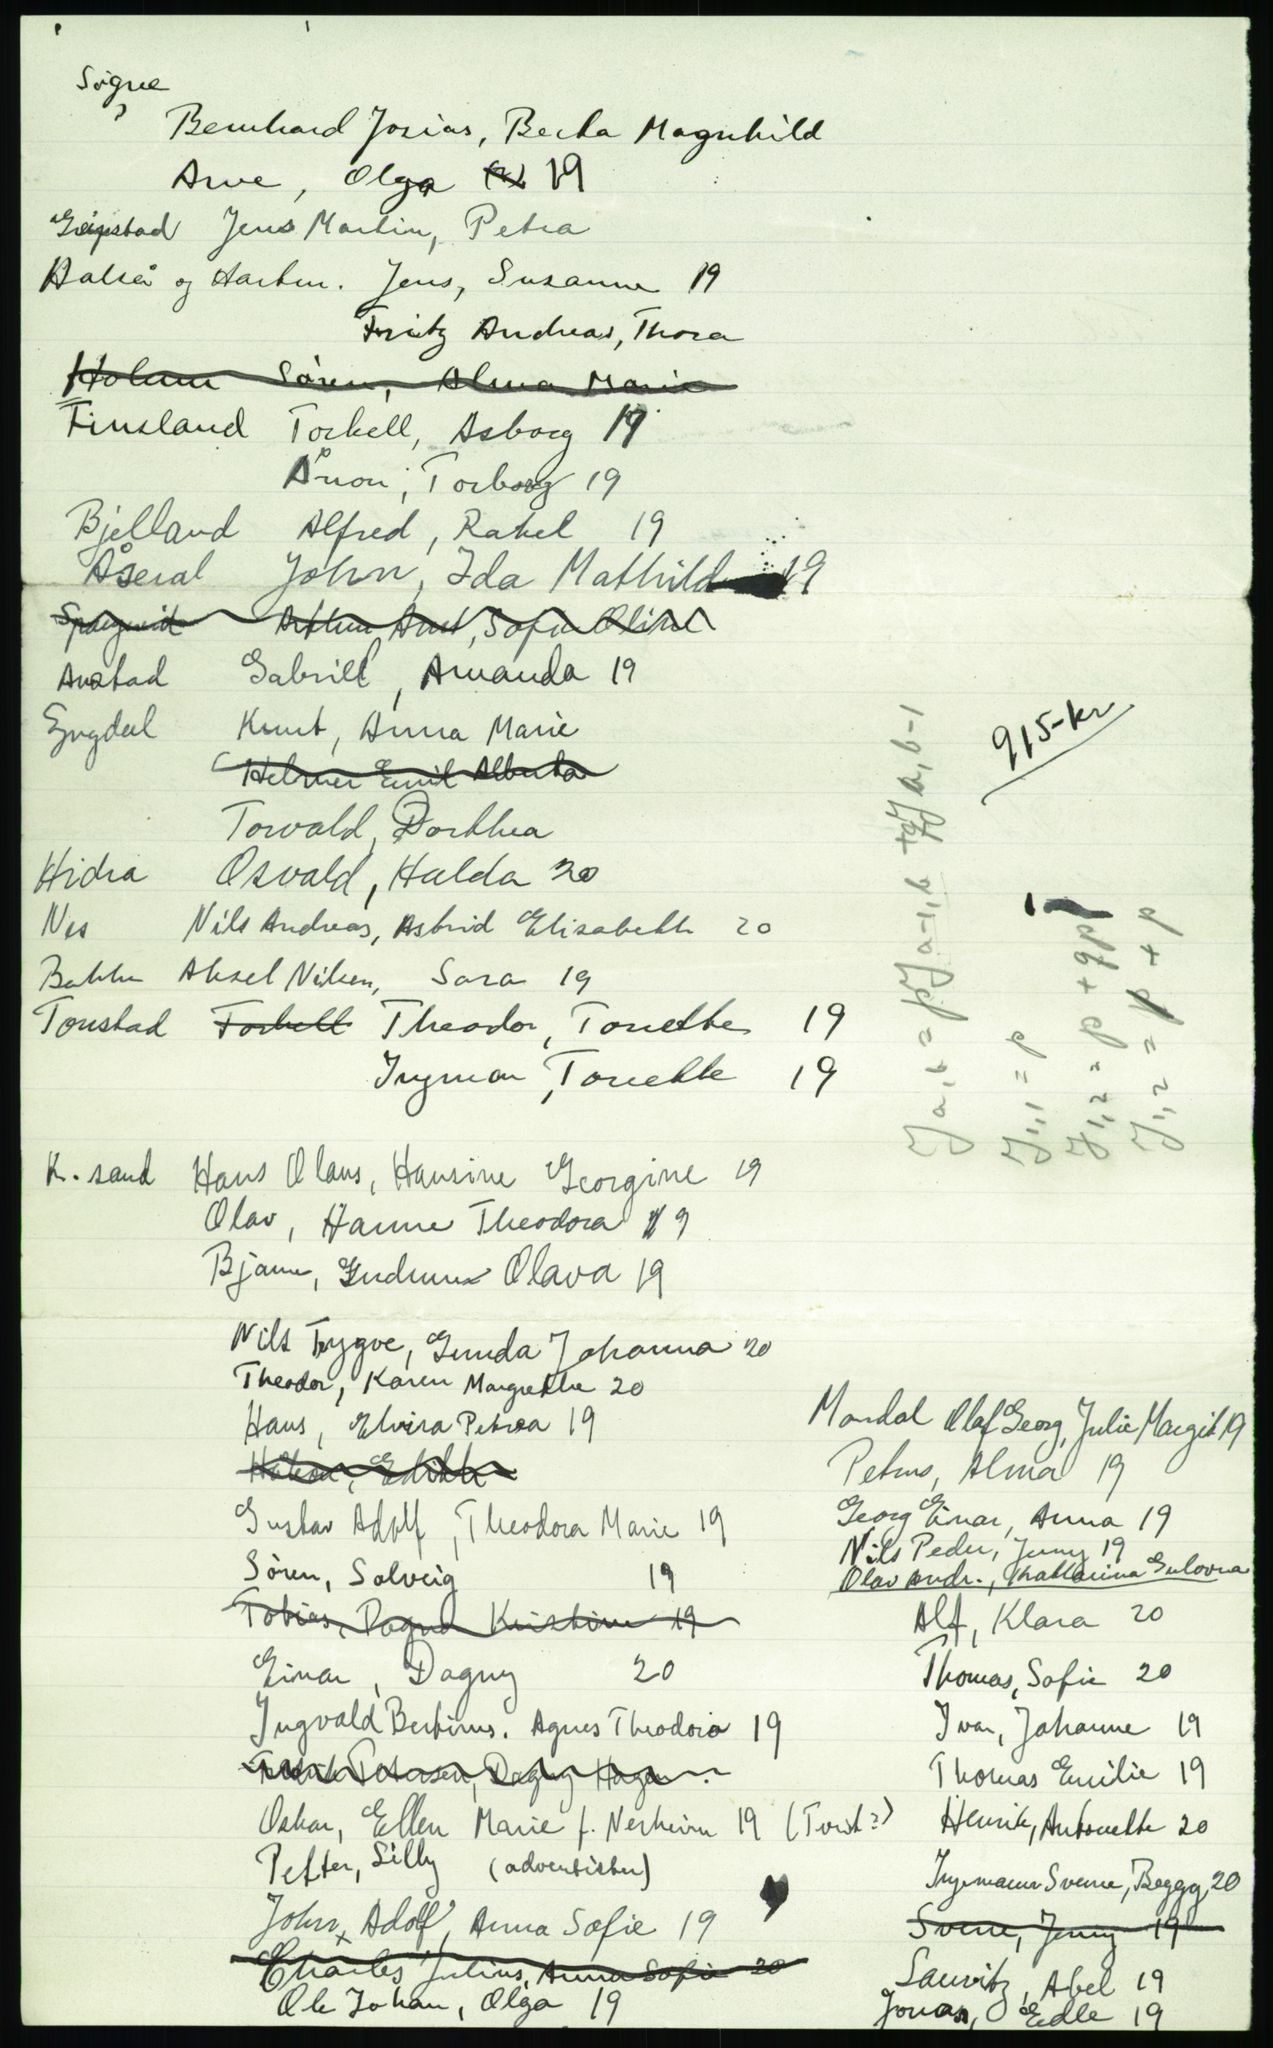 Søgne
Bernhard Josias, Berta Magnhild
Arve, Olga 19
Greipstad Jens Martin, Petra
Halså og Hartm. Jens, Susanne 19
Fritz Andreas, Thora
Holum Søren, Alma Marie
Finsland Torkell, Asborg 19
Ånon, Torborg 19
Bjelland Alfred, Rakel 19
Åseral John, Ida Mathilde 19
Arthur Sofie Oline
Austad Gabriell, Amanda 19
Kvgdal Knut, Anna Marie
Helmer Emil Alberta
Torvald, Dorthea
Hidra Osvald, Hulda 20
Nes Nils Andreas, Astrid Elisabeth 20
Bakke Aksel Nilsen, Sara 19
Tonstad Torkell Theodor, Tonette 19
Ingman, Tonette 19
K.sand Hans Olaus, Hansine Georgine 19
Olav, Hanne Theodora 19
Bjarne, Gudrun Olava 19
Nils Trygve, Gunda Johanna 20
Theodor, Karen Margrethe 20
Hans, Elvira Petrea 19
Håkon, Edith
Gustav Adolf, Theodora Marie 19
Søren, Solveig 19
Tobias, Dagny Kristine 19
Einar, Dagny 20
Ingvald Bertinus. Agnes Theodora 19
Petersen, Dagny Hagen
Oskar, Ellen Marie f. Nesheim 19 (Tvist?)
Petter, Silly (adventister)
John, Adolf, Anna Sofie 19
Charles Julius, Anna Sofie 20
Ole Johan, Olga 19
Mandal Olaf Georg, Julie Margit 19
Petrus, Alma 19
Georg Einar, Anna 19
Nils Peder, Jenny 19
Olav Andr., Kathharina Gulovna
Alf, Klara 20
Thomas, Sofie 20
Ivar, Johanne 19
Thomas Emilie 19
Henrik, Antonette 20
Ingemann Sverre, Beggy 20
Sverre, Jenny 19
Lauritz, Abel 19
Jonas, Edle 19
915-kr
Ja,b = pJa-1,b + qJa,b-1
J1,1 = p
J1,2 = p + qp
J1,2 = p + p